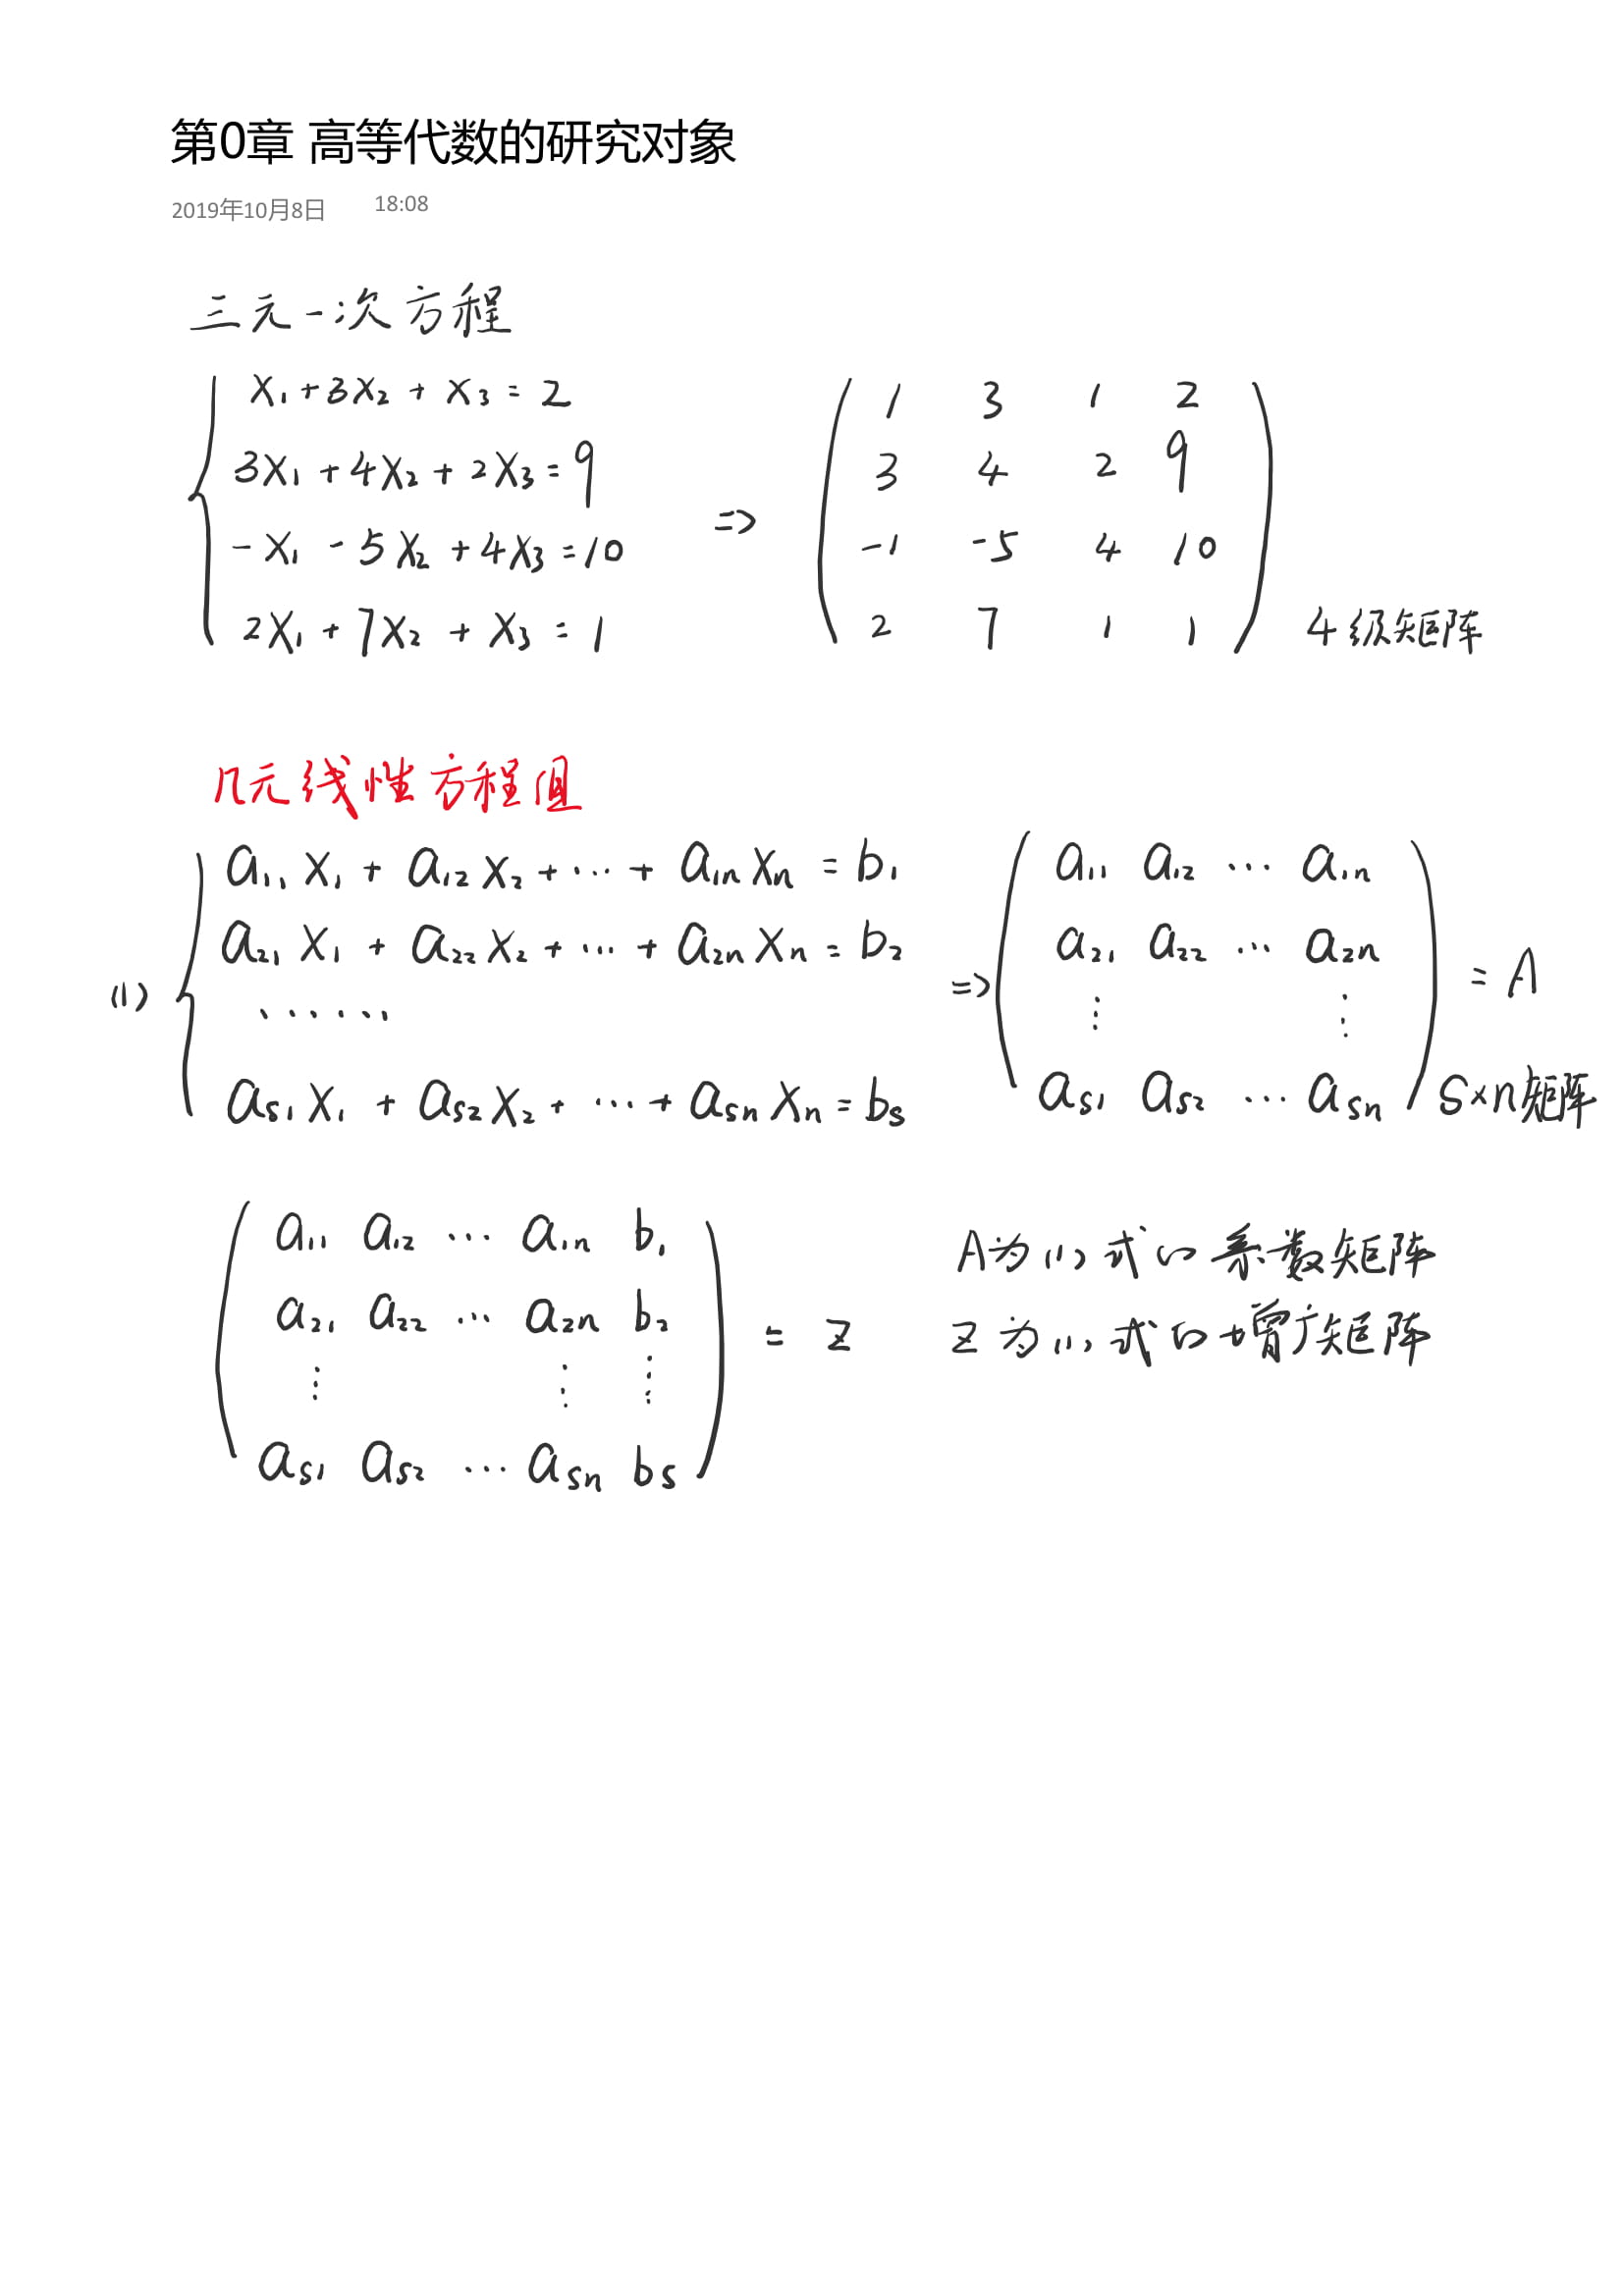 第0章 高等代数的研究对象
2019年10月8日 18:08
三元一次方程
x₁+3x₂+x₃=2
3x₁+4x₂+2x₃=9
-x₁-5x₂+4x₃=10
2x₁+7x₂+x₃=1
=>
1 3 1 2
3 4 2 9
-1 -5 4 10
2 7 1 1
4级矩阵
n元线性方程组
(1)
a₁₁x₁+a₁₂x₂+…+a₁ₙxₙ=b₁
a₂₁x₁+a₂₂x₂+…+a₂ₙxₙ=b₂
······
aₛ₁x₁+aₛ₂x₂+…+aₛₙxₙ=bₛ
=>
a₁₁ a₁₂ … a₁ₙ
a₂₁ a₂₂ … a₂ₙ
⋮ ⋮
aₛ₁ aₛ₂ … aₛₙ
=A
s×n矩阵
a₁₁ a₁₂ … a₁ₙ b₁
a₂₁ a₂₂ … a₂ₙ b₂
⋮ ⋮ ⋮
aₛ₁ aₛ₂ … aₛₙ bₛ
= Z
A为(1)式的系数矩阵
Z为(1)式的增广矩阵